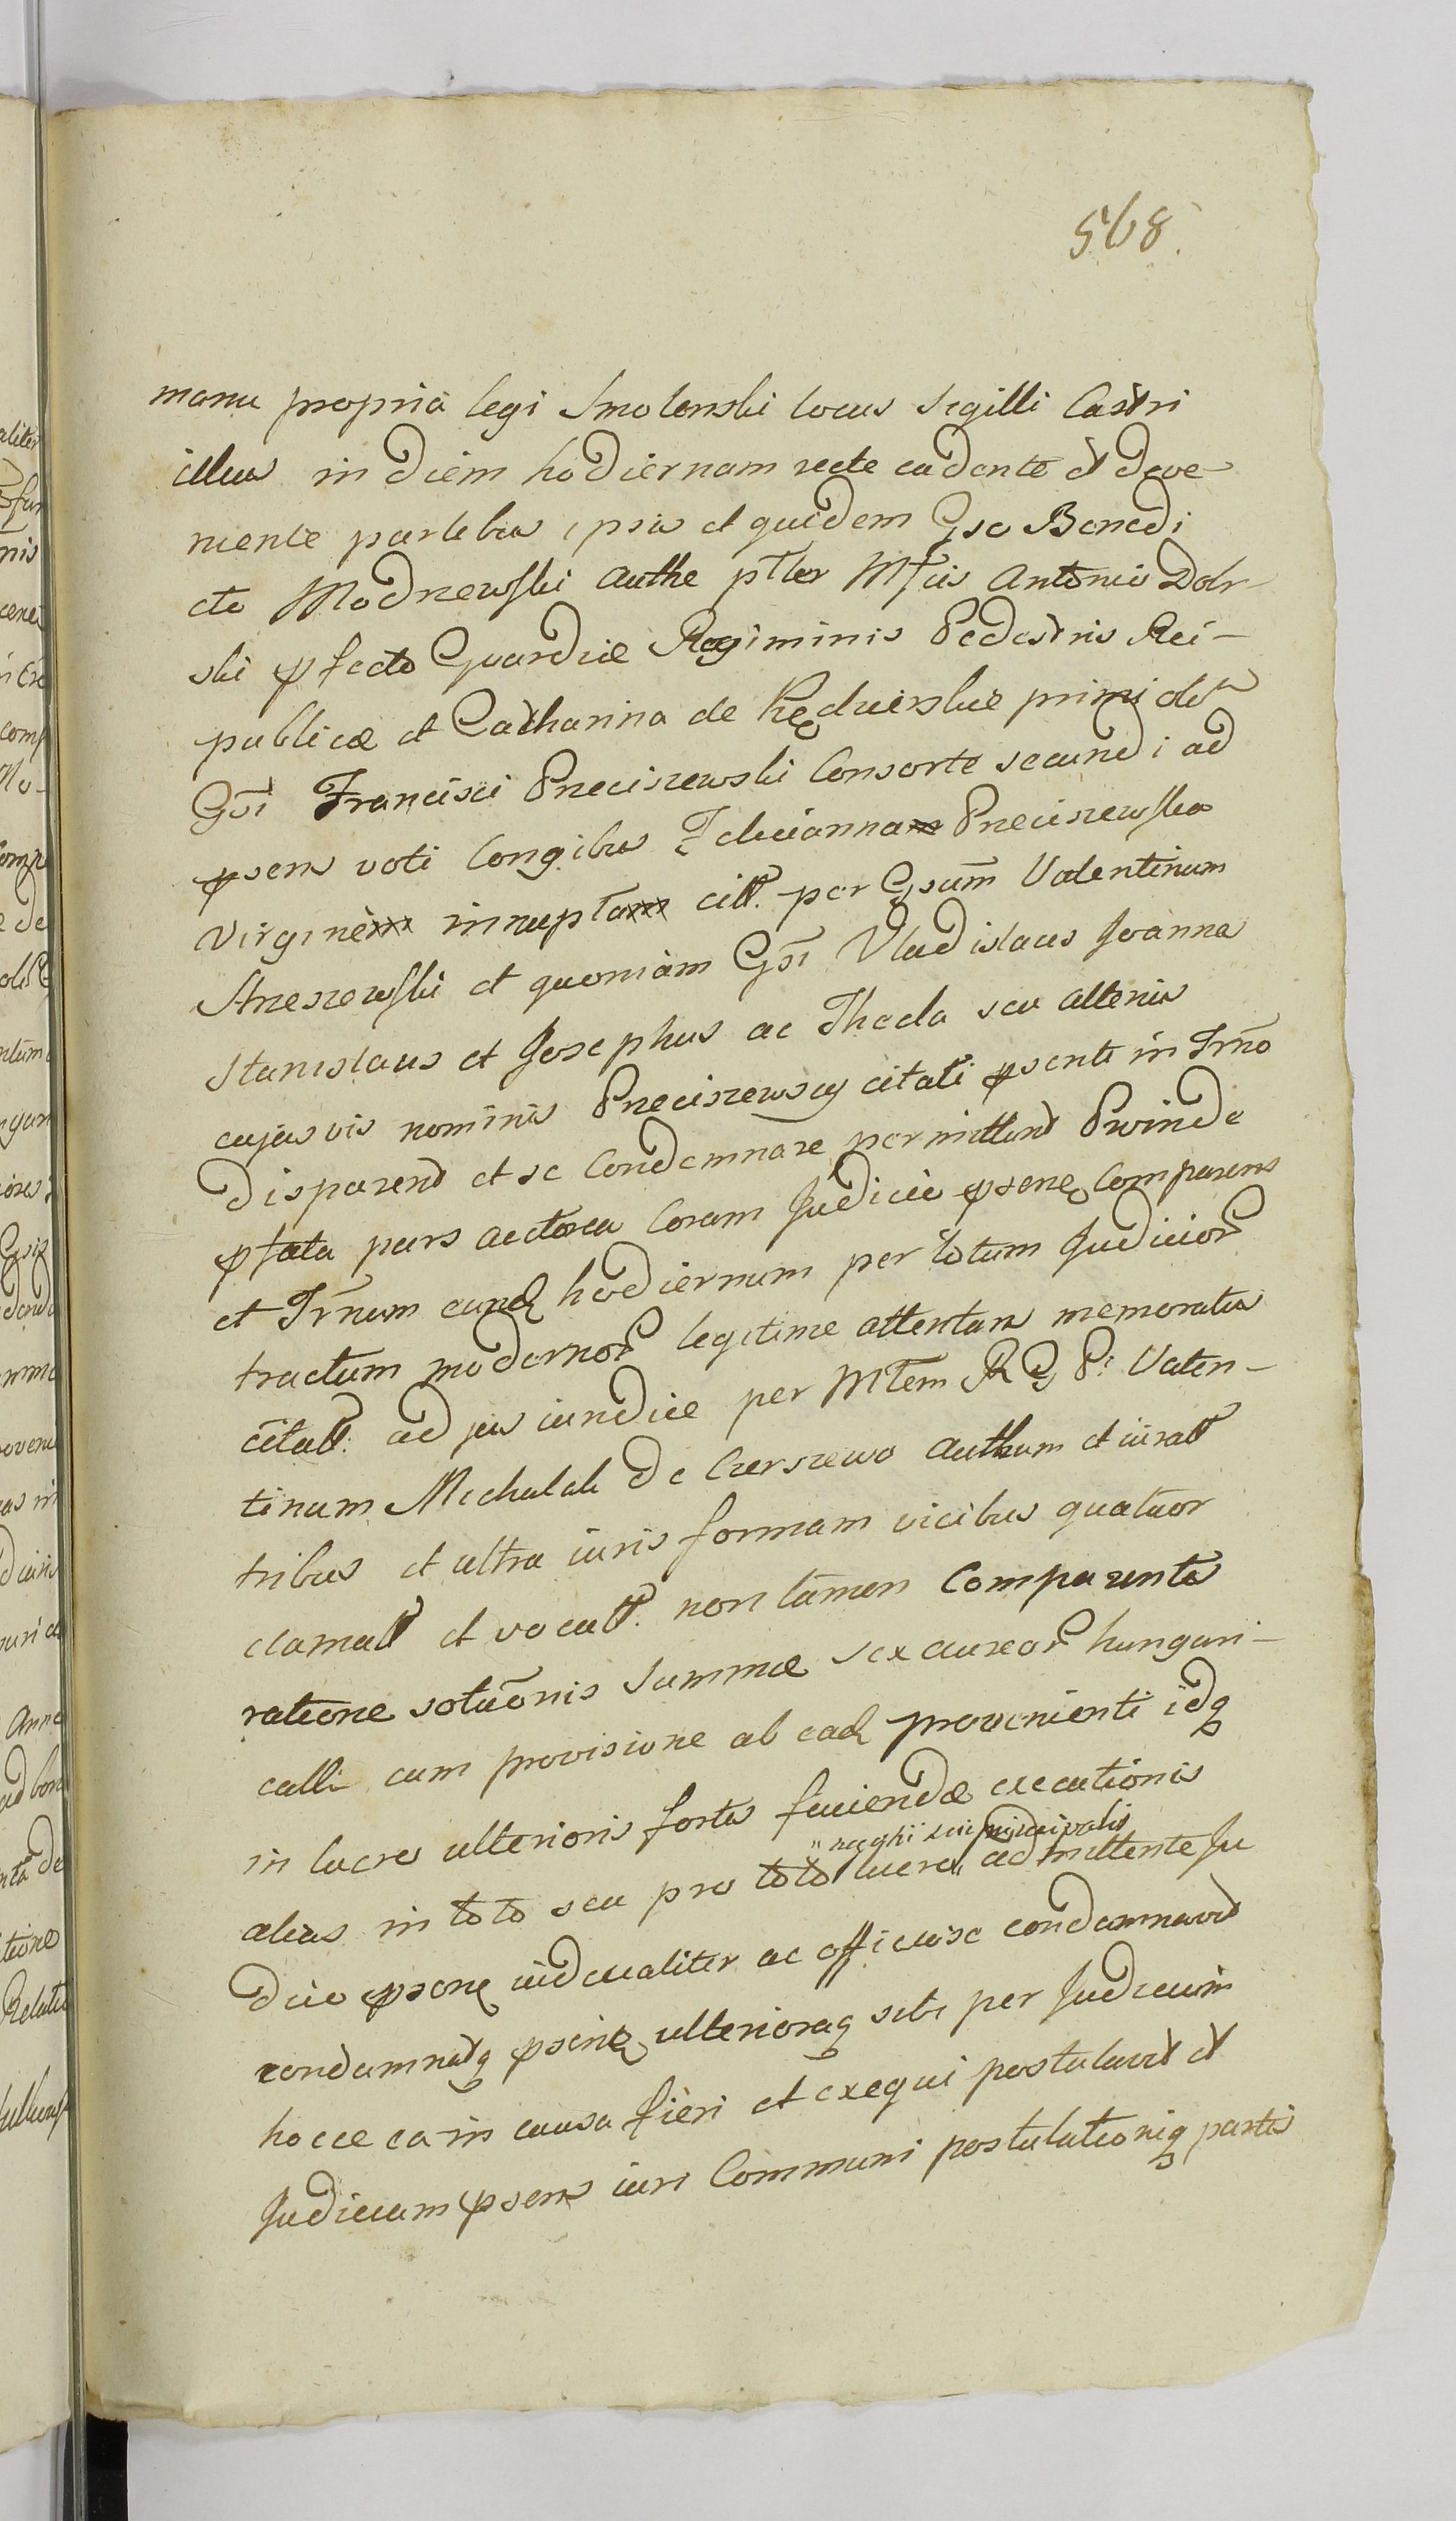 568.
manu propria legi Smolenski locus Sigilli Castri
illius in diem hodiernam recte cadente et deve-
niente partibus ipsis et quidem Gso Benedi
cto Modrzewski Authe ptler Mfcis Antonio Dolr-
ski pfecto Guardiæ Regiminis Pedestris Rei-
publicæ et Catharina de primi
Gsi Franciszi Preciszewski Consorte secundi ad
psens voti Congibus Felicianna Preciszewska
Virgine innupta citt. per Gsum Valentinum
Strzeszewski et quoniam Gsi Vladislaus Joanna
Stanislaus et Josephus ac Thecla seu alterius
cujusvis nominis Preciszewscy citati psenti in Trno
disparent et se Condemnare permittunt Proinde
pfata pars actorea Coram Judicio psenq Comparens
et Trnum eundq hodiernum per totum Judicior
tractum modernor legitime attentans memoratis
citatt. ad jus iuridice per Mtem R G Pi Valen-
tinum Michalak de Czerszewo authum et iuratt
tribus et ultra iuris formam vicibus quatuor
clamatt et vocatt. non tamen Comparentes
ratione solutionis Summæ sex aureor hungari-
calli cum provisione ab eadq provenienti idq
in lucro ulterioris fortis faciendæ executionis
" neqhi sui principalis
alias in toto seu pro toto lucro " admittente Ju
dicio psenq iudicialiter ac officiose condemnavit
condemnatq psenq ulterioraq sibi per Judicium
hocce ea in causa fieri et exequi postulavit et
Judicium psens iuri Communi postulationiq partis